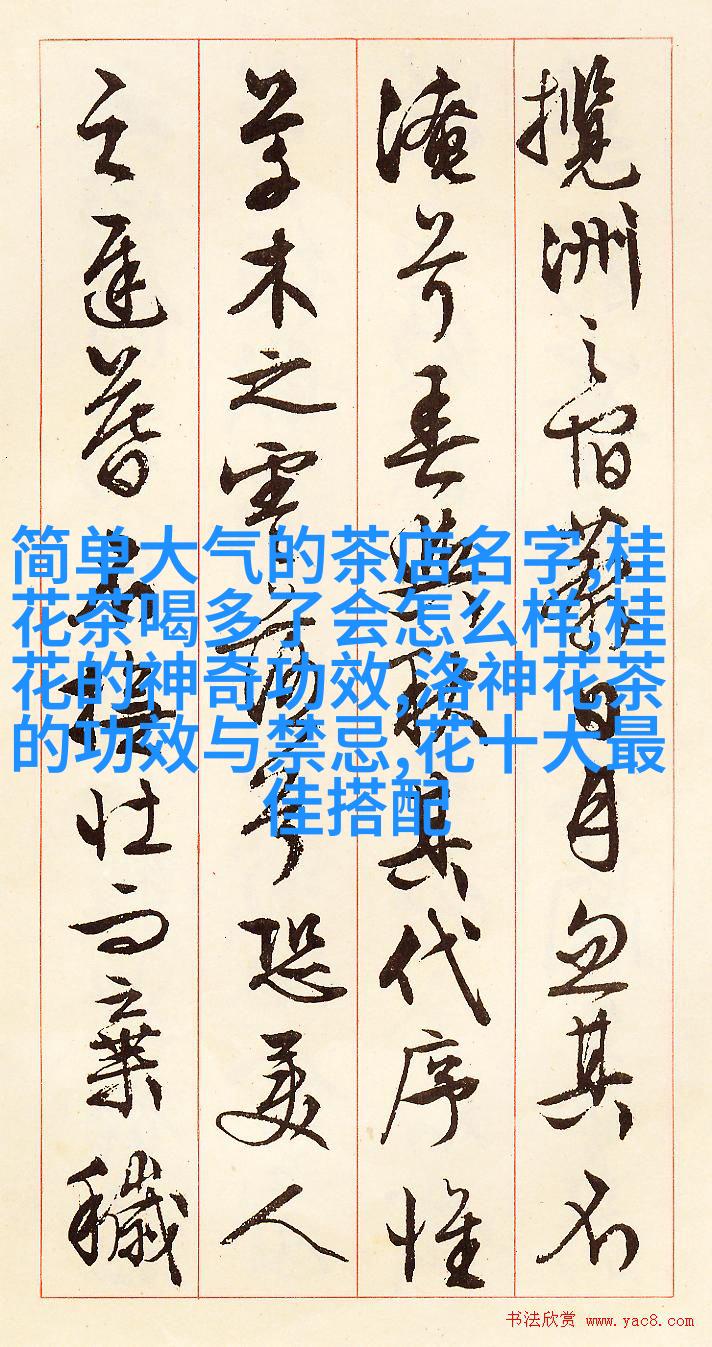 攬洲之宿莽日月忽其不
淹兮春與秋其代序惟
草木之零落兮恐美人
之遲暮不撫壯而棄穢
简单大气的茶店名字,桂
花茶喝多了会怎么样,桂
花的神奇功效,洛神花茶
的功效与禁忌,花十大最
佳搭配
书法欣赏 www.yac8.com